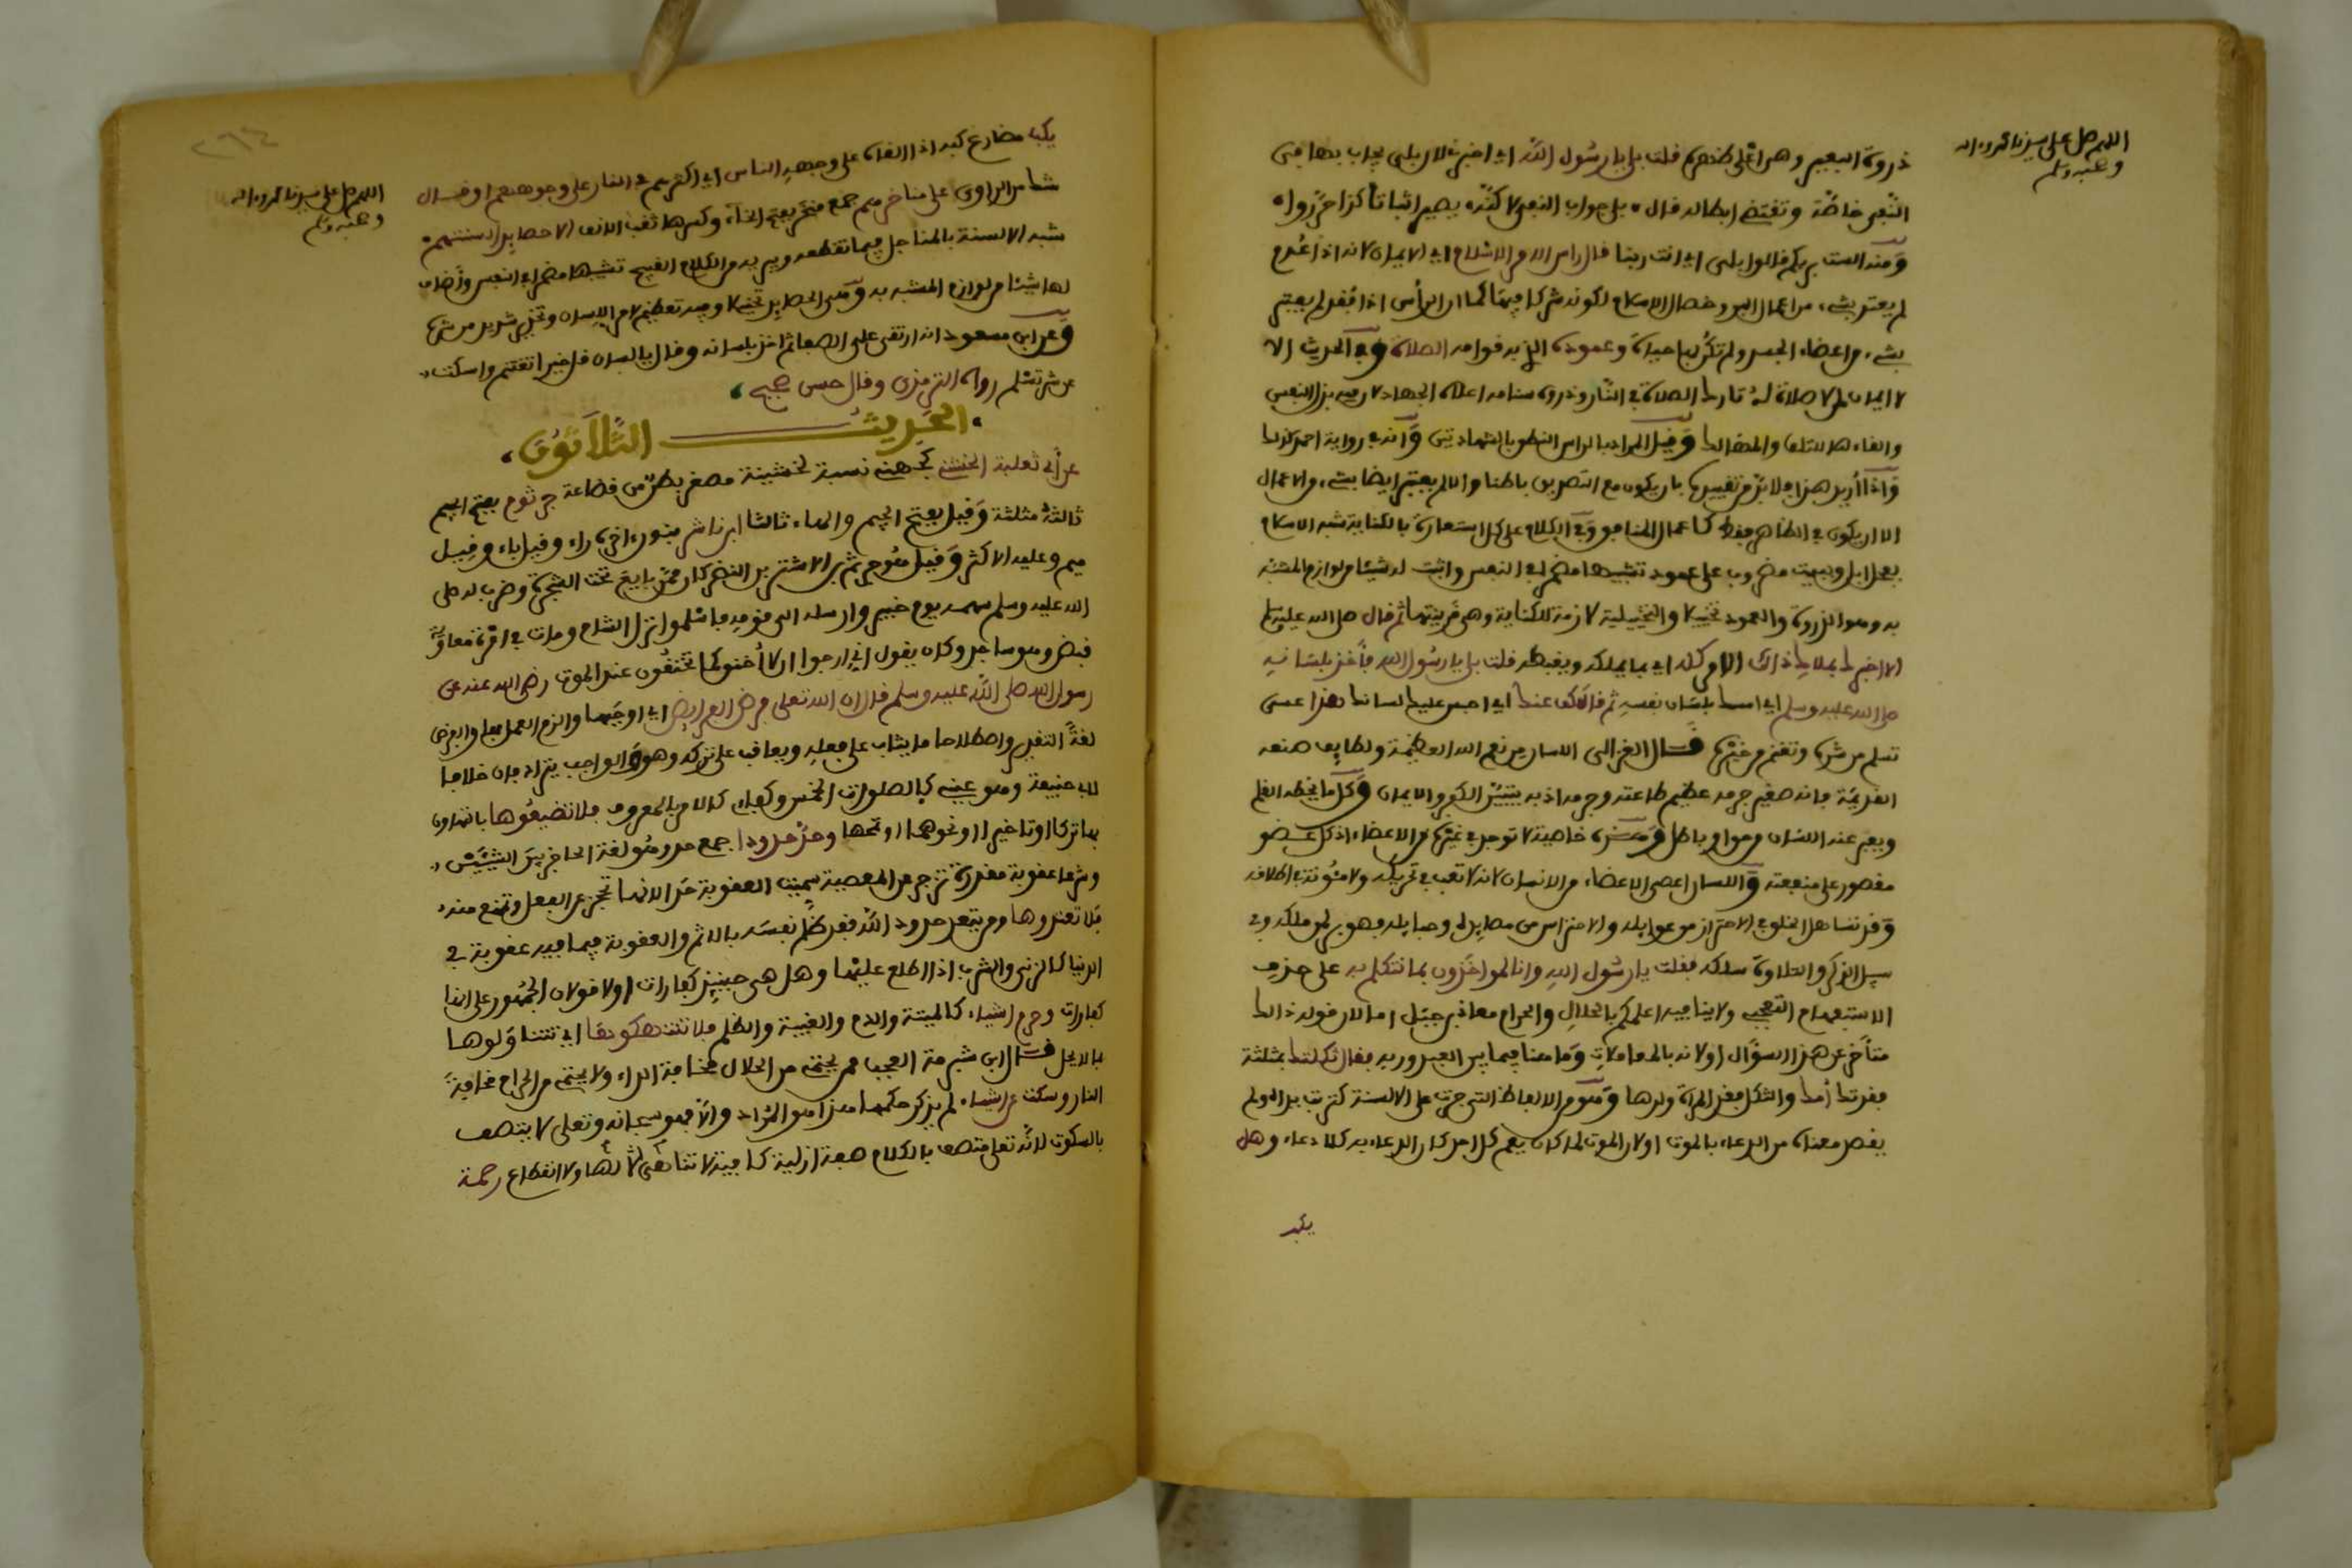 اللهم صل على سيدنا محمد واله
وصحبه وسلم
ذروة البعير وهي اعلى ظهره قلت بلى يا رسول الله اي اخبرني لان بلى يجاب بها في
النفي خاصة وتقتضي ابطاله قال بلى جواب النفي لاكنه يصير اثباتا كذا حرروا
ومنه الست بربكم قالوا بلى اي انت ربنا قال راس الامر الاسلام اي الايمان لانه اذا عدم
لم يعتبر بشيء من اعمال البر وخصال الاسلام لكونه شرطا فيها كما ان الراس اذا فقد لم يعتبر
بشيء من اعضاء الجسد ولم تكن بها حياة وعموده الذي به قوامه الصلاة وفي الحديث الا
لا ايمان لمن لا صلاة له تارك الصلاة في النار وذروة سنامه اعلاه الجهاد لان فيه بذل النفس
والقاءها للتلف والمهالك وقيل المراد بالراس النطق بالشهادتين وانه في رواية احمد كذلك
واذا اريد هذا فلا بد من تقييدها بان يكون مع التصديق باطنا والا لم يعتبر ايضا بشيء من الاعمال
الا ان يكون في الظاهر فقط كاعمال المنافق وفي الكلام على كل استعارة بالكناية شبه الاسلام
بفحل ابل وببيت مضروب على عمود تشبيها مضمرا في النفس واثبت له شيئا من لوازم المشبه
به وهو الذروة والعمود تخييلا والتخييلية لازمة للكناية وهي قرينتها ثم قال صلى الله عليه وسلم
الا اخبرك بملاك ذلك الامر كله اي بما يملكه ويضبطه قلت بلى يا رسول الله فاخذ بلسانه
صلى الله عليه وسلم اي امسك بلسان نفسه ثم قال كف عنك اي احبس عليك لسانك هذا عسى
تسلم من شره وتغنم من خيره قال الغزالي اللسان من نعم الله العظيمة ولطايف صنعه
الغريبة فانه صغير جرمه عظيم طاعته وجرمه اذ به يتبين الكفر والايمان وكل ما يخطه القلم
ويعبر عنه اللسان فهو اي باطل وهذه خاصية لا توجد في غيره من الاعضاء اذ كل عضو
مقصور على منفعته واللسان اعصى الاعضاء من الانسان لانه لا تعب في تحريكه ولا مئونة في اطلاقه
وقد تساهل الخلق في الاحتراز من غوايله والاحتراس من مصايده وحبايله فهو لمن ملكه وفي
سبيل الذكر والتلاوة سلكه فقلت يا رسول الله وانا لمواخذون بما نتكلم به على حذف
الاستفهام التعجبي ولا ينافيه اعلمكم بالحلال والحرام معاذ بن جبل اما لان قوله ذلك
متاخر عن هذا السؤال او لانه بالمعاملات وما هنا فيما بين العبد وربه فقال ثكلتك بمثلثة
فقدتك امك والثكل فقد المراة ولدها وهو من الالفاظ التي جرت على الالسنة كتربت يداك ولم
يقصد معناه من الدعاء بالموت او لان الموت لما كان يعم كل احد كان الدعاء به كلا دعاء وهل
يكب
اللهم صل على سيدنا محمد واله
وصحبه وسلم
يكب مضارع كبه اذا القاه على وجهه الناس اي اكثرهم في النار على وجوههم او قال
شك من الراوي على مناخرهم جمع منخر بفتح الخاء وكسرها ثقب الانف الا حصايد السنتهم
شبه الالسنة بالمناجل فيما تقطعه ويريد من الكلام القبيح تشبيها مضمرا في النفس واضاف
لها شيئا من لوازم المشبه به وهي الحصايد تخييلا وفيه تعظيم لامر اللسان وتحذير شديد من شره
وعن ابن مسعود انه ارتقى على الصفا ثم اخذ بلسانه وقال يا لسان قل خيرا تغتنم واسكت
عن شر تسلم رواه الترمذي وقال حسن صحيح
الحديث الثلاثون
عن ابي ثعلبة الخشني كجهني نسبة لخشينة مصغر بطن من قضاعة جرثوم بفتح الجيم
ثالثه مثلثة وقيل بفتح الجيم والهاء ثالثا ابن ناشر بنون اخره راء وقيل باء وقيل
ميم وعليه الاكثر وقيل ابن الاشتر بن النضر كان ممن بايع تحت الشجرة وضرب له صلى
الله عليه وسلم بسهمه يوم خيبر وارسله الى قومه فاسلموا نزل الشام ومات في امرة معاوية
قبض وهو ساجد وكان يقول اني لارجوا ان لا اخنق كما تختنقون عند الموت رضي الله عنه عن
رسول الله صلى الله عليه وسلم قال ان الله تعلى فرض الفرايض اي اوجبها والزم العمل بها والفرض
لغة التقدير واصطلاحا ما يثاب على فعله ويعاقب على تركه وهو والواجب يترادفان خلافا
لابي حنيفة وهو عيني كالصلوات الخمس وكفاءي كالامر بالمعروف فلا تضيعوها بالتهاون
بها تركا او تاخيرا او نحوهما وحد حدودا جمع حد وهو لغة الحاجز بين الشيئين
وشرعا عقوبة مقدرة تزجر عن المعصية سميت العقوبة حدا لانها تحجز عن الفعل وتمنع منه
فلا تعتدوها ومن يتعد حدود الله فقد ظلم نفسه بالاثم والعقوبة فيما فيه عقوبة في
الدنيا كالزنى والشرب اذا اطلع عليهما وهل هي حينئذ كفارات او لا قولان الجمهور على انها
كفارات وحرم اشياء كالميتة والدم والغيبة والظلم فلا تنتهكوها اي تتناولوها
بالاجل قال ابن شبرمة العجب ممن يحتمي من الحلال مخافة الداء ولا يحتمي من الحرام مخافة
النار وسكت عن اشياء لم يذكر حكمها هذا هو المراد والا فهو سبحانه وتعلى لا يتصف
بالسكوت لانه تعلى متصف بالكلام صفة ازلية كافية لا تناهي لها ولا انقطاع رحمة